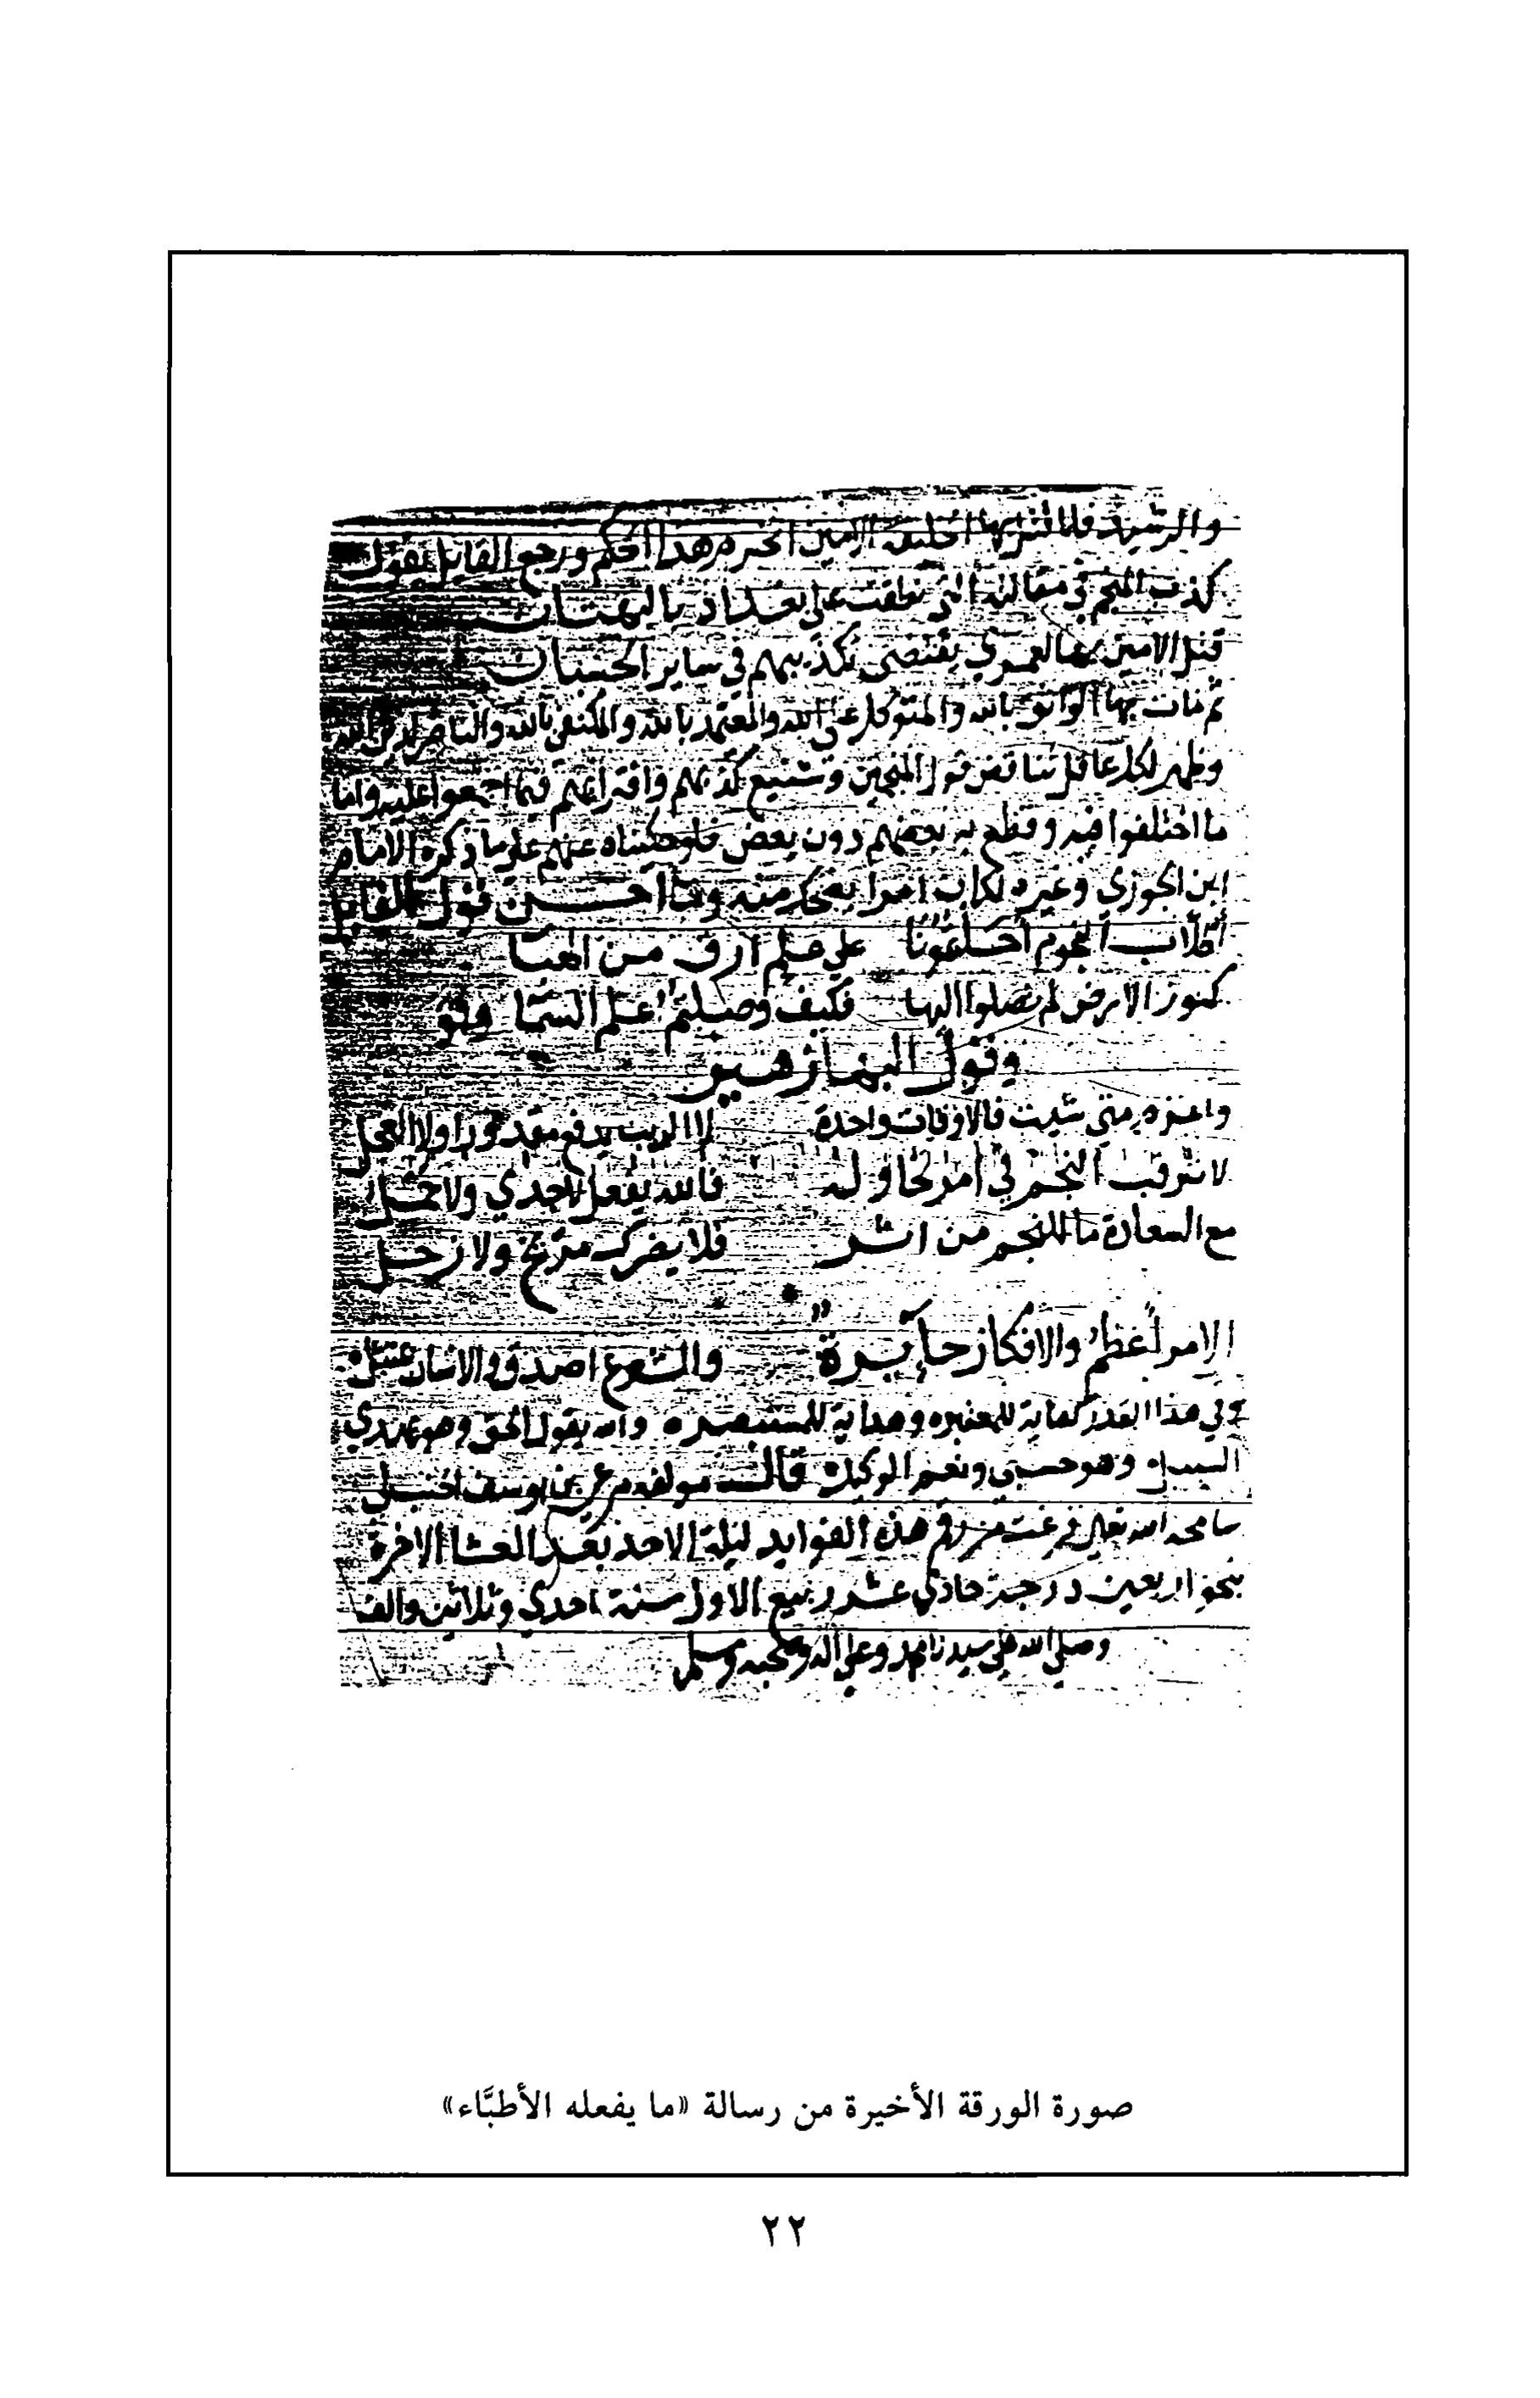 والرشيد فلما قتل بها الخليفة الامين انخرم هذا الحكم ورجع القايل يقول
كذب المنجم في مقالته التي نطقت على بغداد بالبهتان
قتل الامين بها لعمري يقتضي تكذيبهم في ساير الحسبان
ثم مات بها الواثق بالله والمتوكل على الله والمعتضد بالله والمكتفي بالله والناصر لدين الله
وظهر لكل عاقل تناقض قول المنجمين وشنيع كذبهم وافترائهم فيما اجمعوا عليه واما
ما اختلفوا فيه وقطع به بعضهم دون بعض فلو حكيناه عنهم على ما ذكره الامام
ابن الجوزي وغيره لكان امرا يضحك منه وما احسن قول القايل
النجوم احلتمونا على علم ارق من الهبا
كنوز الارض لم تصلوا اليها فكيف وصلتم علم السما
وقول البها زهير
متى شيت فالاوقات واحدة لا الريث يدفع مقدورا ولا العجل
لا ترقب النجم في امر تحاوله فالله يفعل لا جدي ولا حمل
مع السعادة ما للنجم من اثر فلا يضرك مريخ ولا زحل
الامر اعظم والافكار حايرة والشرع اصدق والانسان يمتثل
وفي هذا القدر كفاية للمعتبر وهداية للمستبصر والله يقول الحق وهو يهدي
السبيل وهو حسبي ونعم الوكيل قال مولفه مرعي بن يوسف الحنبلي
سامحه الله تعالى فرغت من رقم هذه الفوايد ليلة الاحد بعد العشا الاخرة
بنحو اربعين درجة حادي عشر ربيع الاول سنة احدى وثلاثين والف
وصلى الله على سيدنا محمد وعلى اله وصحبه وسلم
صورة الورقة الأخيرة من رسالة «ما يفعله الأطبَّاء»
٢٢